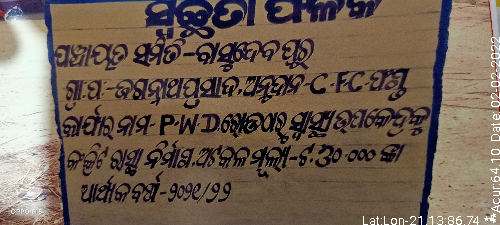 ସ୍ୱଚ୍ଛତା ଫଳକ
ପଞ୍ଚାୟତ ସମିତି-ବାସୁଦେବପୁର
ଗ୍ରା.ପ.-ଜଗନ୍ନାଥପ୍ରସାଦ, ଅନୁଦାନ-C.F.C-ଫଣ୍ଡ
କାର୍ଯ୍ୟର ନାମ-P.W.D.ରୋଡଠାରୁ ସ୍ୱାସ୍ଥ୍ୟ ଉପକେନ୍ଦ୍ରକୁ
କଂକ୍ରିଟ ରାସ୍ତା ନିର୍ମାଣ, ଅଟକଳ ମୂଲ୍ୟ-ଟ.୩୦.୦୦୦ ଙ୍କା
ଆର୍ଥିକ ବର୍ଷ-୨୦୨୧/୨୨
OPPO F15
Lat:Lon-21,13:86,74
Date, 02-02-2022